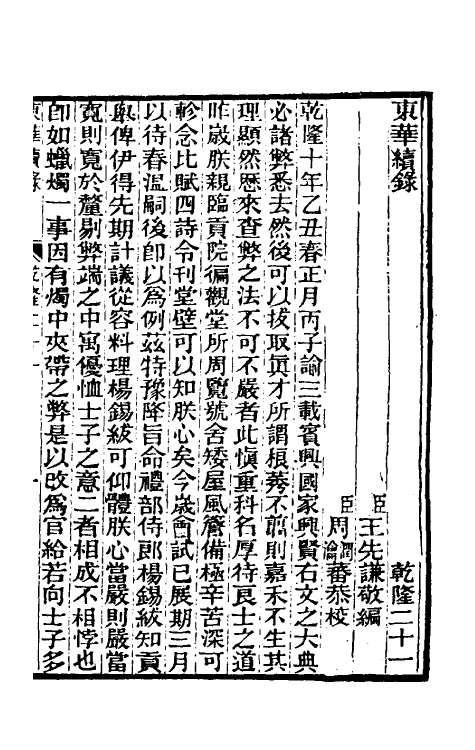 東華續錄
乾隆二十一
臣王先謙敬編
臣周潤蕃周瀹蕃恭校
乾隆十年乙丑春正月丙子諭三載賓興國家興賢右文之大典
必諸弊悉去然後可以拔取眞才所謂根莠不翦則嘉禾不生其
理顯然歷來查弊之法不可不嚴者此愼重科名厚待良士之道
昨歲朕親臨貢院徧觀堂所周覽號舍矮屋風簷備極辛苦深可
軫念比賦四詩令刊堂壁可以知朕心矣今歲會試已展期三月
以待春溫嗣後卽以爲例茲特豫降旨命禮部侍郎楊錫紱知貢
舉俾伊得先期計議從容料理楊錫紱可仰體朕心當嚴則嚴當
寬則寬於釐剔弊端之中寓優恤士子之意二者相成不相悖也
卽如蠟燭一事因有燭中夾帶之弊是以改爲官給若向士子多
東華續錄
乾隆二十一
一